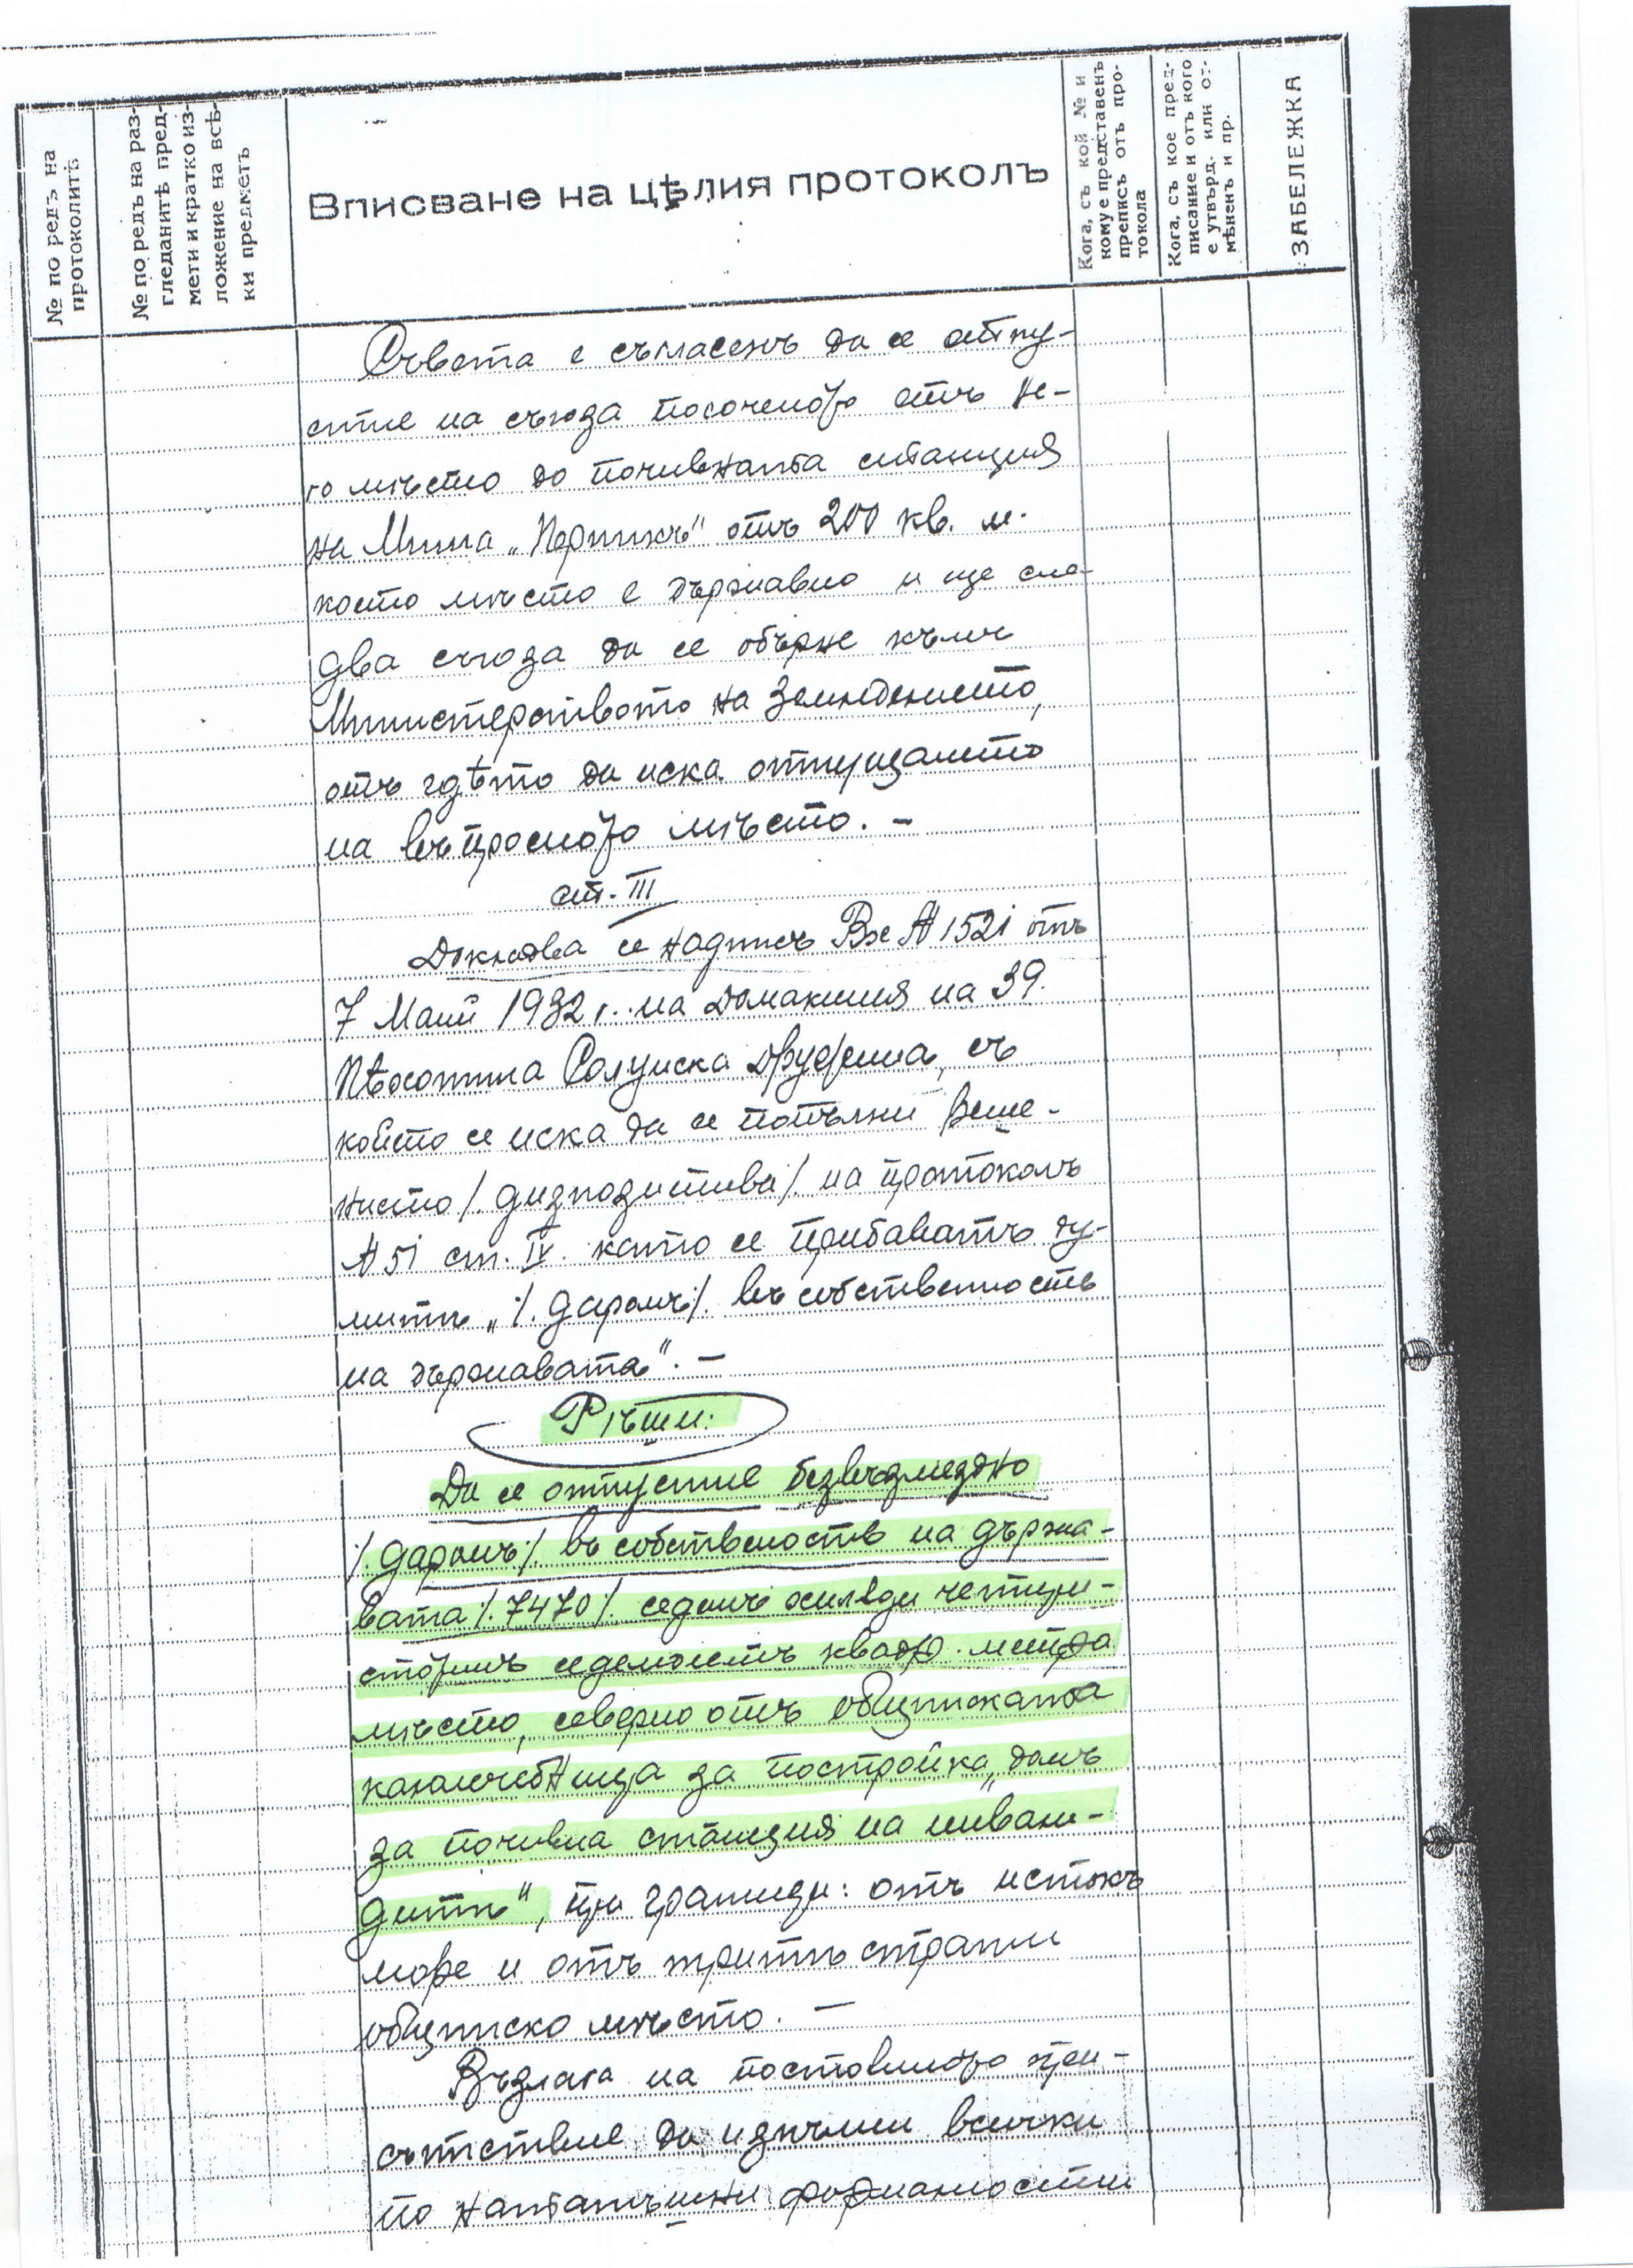 № по редъ на
протоколитѣ
№ по редъ на раз-
гледанитѣ пред-
мети и кратко из-
ложение на всѣ-
ки предметъ
Вписване на цѣлия протоколъ
Кога, съ кой № и
кому е представенъ
преписъ отъ про-
токола
Кога, съ кое пред-
писание и отъ кого
е утвърд. или от-
мѣненъ и пр.
ЗАБЕЛЕЖКА
Съвета е съгласенъ да се отпу-
стне на съюза посоченото отъ не-
го мѣсто до почивната станция
на Мина „Перникъ" отъ 200 кв. м.
което мѣсто е държавно и ще сле-
два съюза да се обърне къмъ
Министерството на Земледелието,
отъ гдѣто да иска отпущането
на въпросното мѣсто. —
ст. III
Докладва се надписъ Вх № 1521 отъ
7 Маий 1932 г. на Домакина на 39.
Пѣхотна Солунска Дружина, съ
който се иска да се попълни реше-
нието /. диспозитива /. на протоколъ
№ 51 ст. IV. като се прибавятъ ду-
митѣ „ /. даромъ /. въ собственность
на държавата". —
Рѣши:
Да се отпустне безвъзмездно
/. даромъ /. въ собственость на държа-
вата /. 7470 /. седемь хиляди четири-
стотинъ седемдесетъ квадр. метра
мѣсто, северно отъ общинската
каналчебница за постройка „домъ
за почивна станция на инвали-
дитѣ", при граници: отъ истокъ
море и отъ тритѣ страни
общинско мѣсто. —
Възлага на постоянното при-
сътствие да изпълни всички
по нататъшни формалности